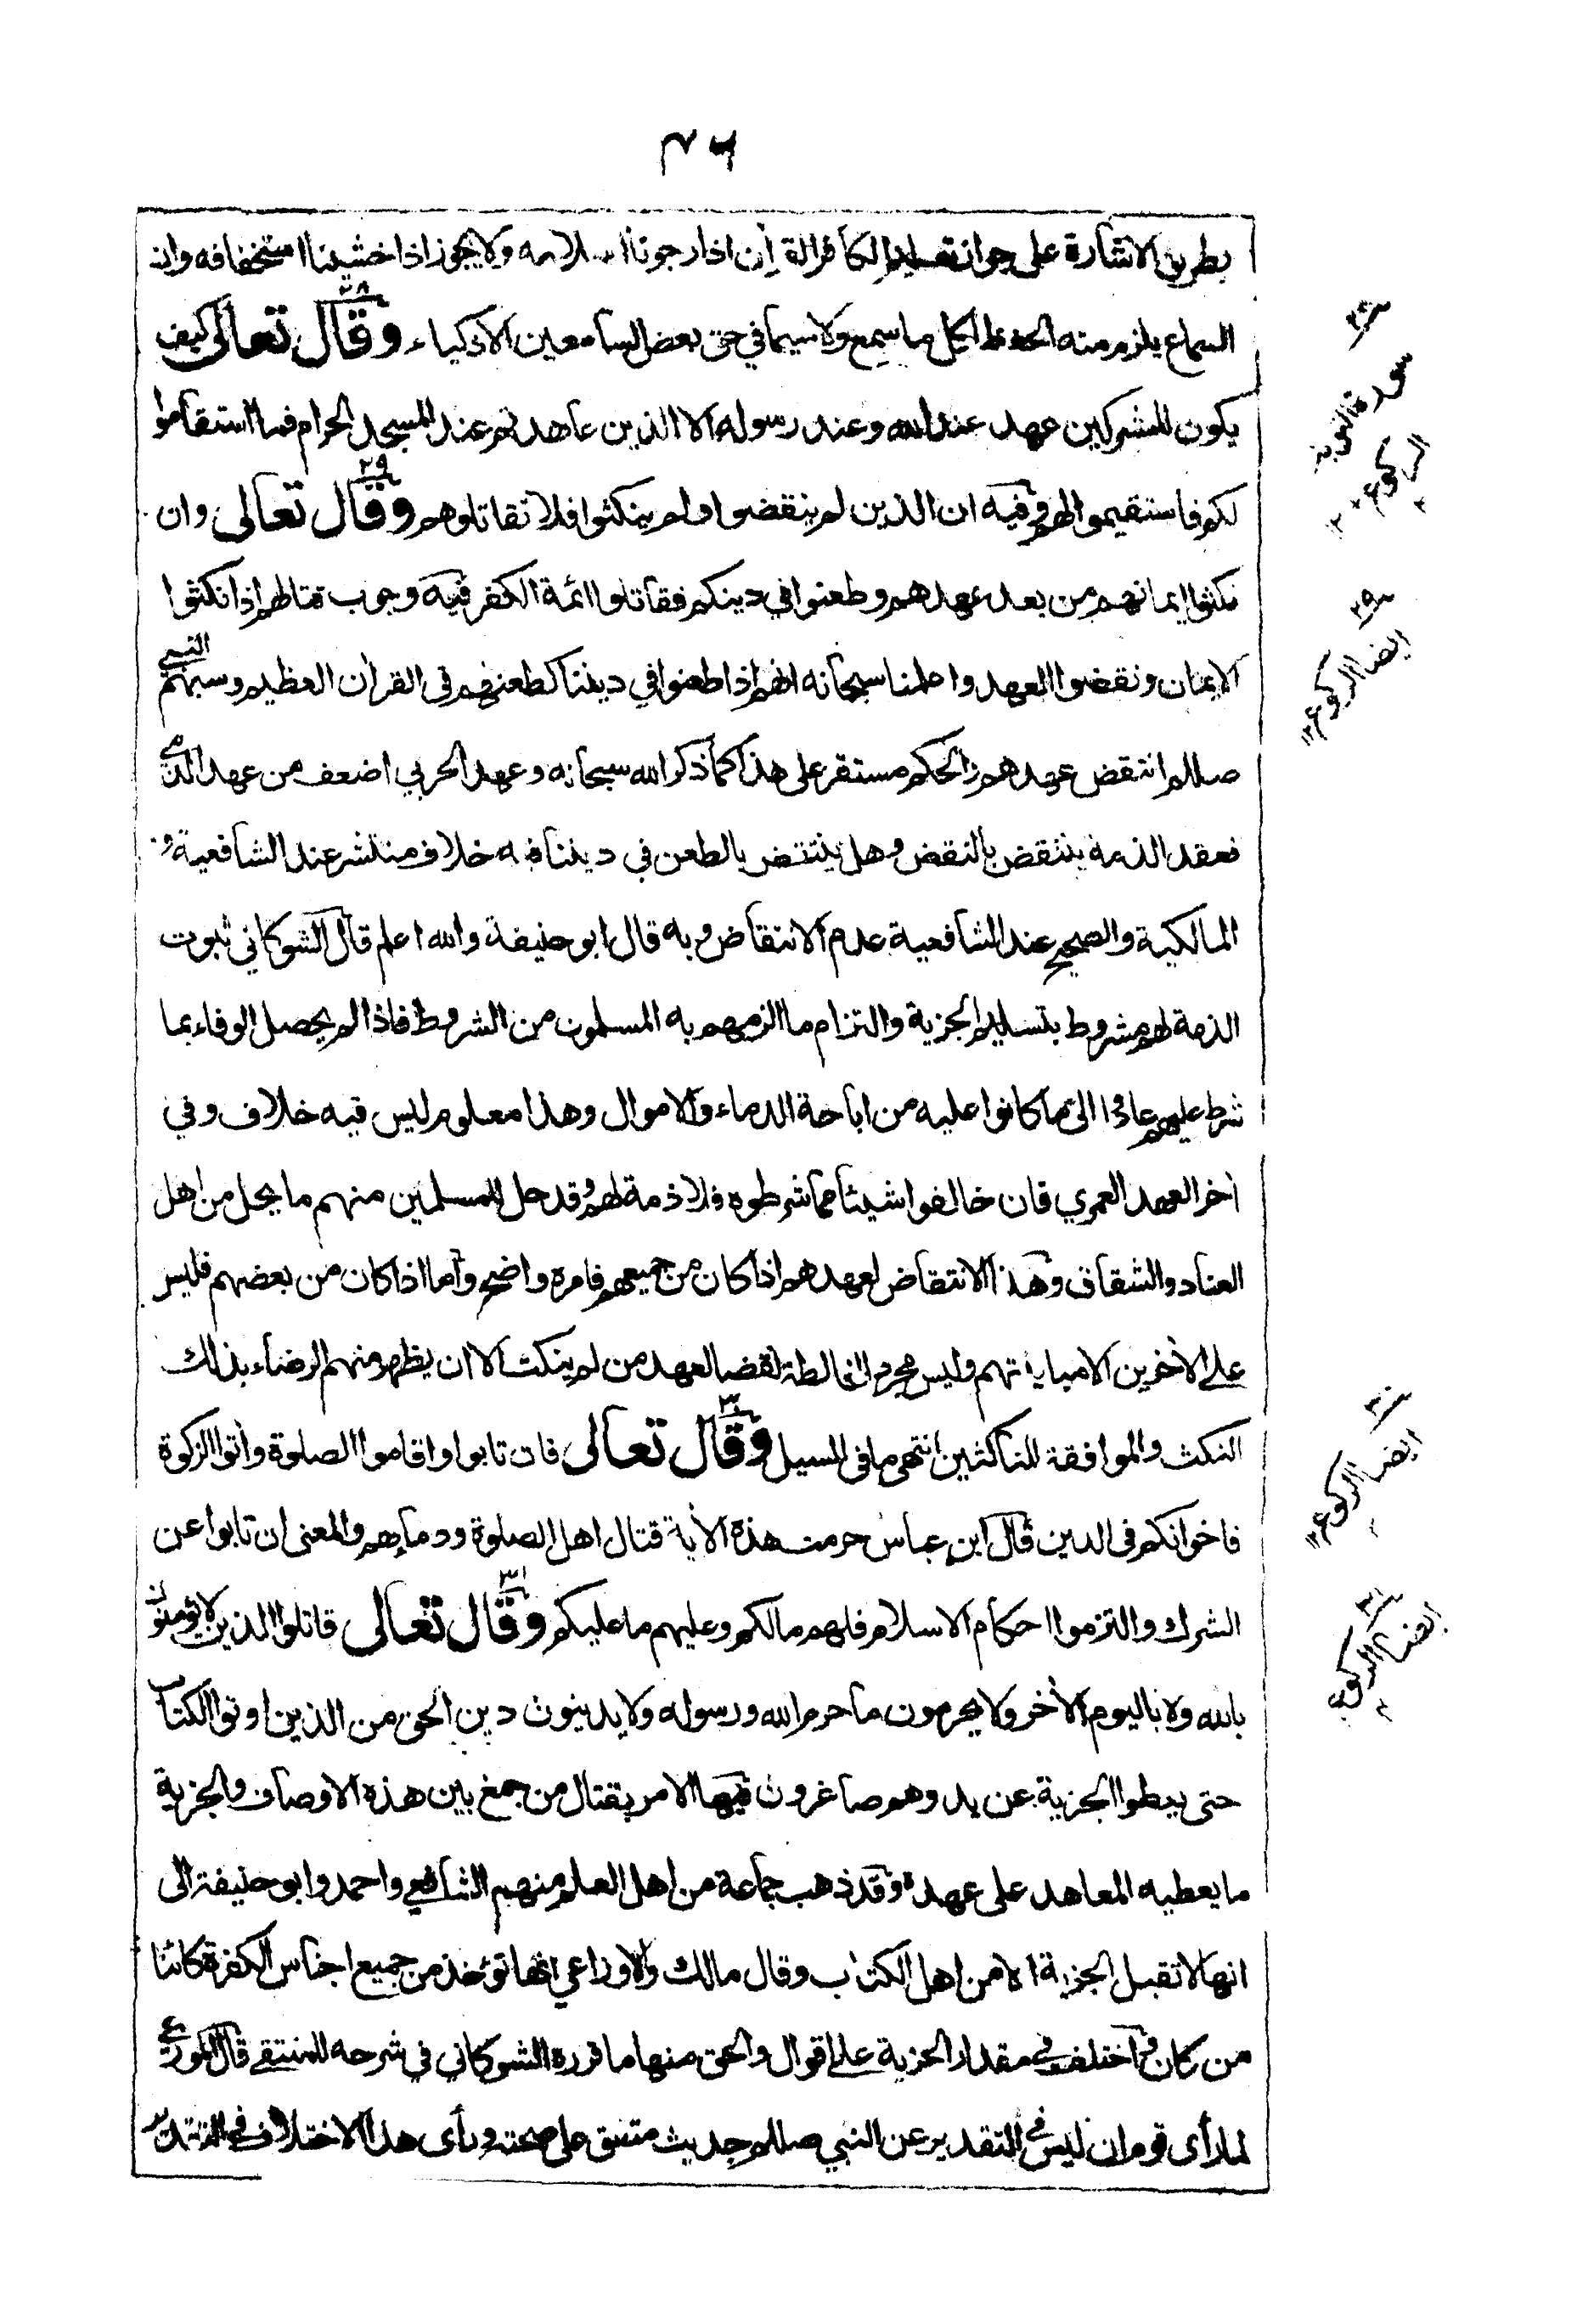 ٤٦
بطريق الاشارة على جواز تعليم الكافر القرآن اذا رجونا اسلامه ولا يجوز اذا خشينا استخفافه وان
السماع يلزم منه الحفظ لكل ما سمع ولا سيما في حق بعض السامعين الاذكياء وقال تعالى كيف
٢٨
يكون للمشركين عهد عند الله وعند رسوله الا الذين عاهدتم عند المسجد الحرام فما استقاموا
لكم فاستقيموا لهم وفيه ان الذين لم ينقضوا ولم ينكثوا فلا تقاتلوهم وقال تعالى وان
٢٩
نكثوا ايمانهم من بعد عهدهم وطعنوا في دينكم فقاتلوا ائمة الكفر فيه وجوب قتالهم اذا نكثوا
الايمان ونقضوا العهد واعلمنا سبحانه انهم اذا طعنوا في ديننا كطعنهم في القرآن العظيم وسبهم النبي
صللم انتقض عهدهم والحكم مستقر على هذا كما ذكر الله سبحانه وعهد الحربي اضعف من عهد الذمي
فعقد الذمة ينتقض بالنقض وهل ينتقض بالطعن في ديننا فيه خلاف منتشر عند الشافعية و
المالكية والصحيح عند الشافعية عدم الانتقاض وبه قال ابو حنيفة والله اعلم قال الشوكاني ثبوت
الذمة لهم مشروط بتسليم الجزية والتزام ما الزمهم به المسلمون من الشروط فاذا لم يحصل الوفاء بما
شرط عليهم عادوا الى ما كانوا عليه من اباحة الدماء والاموال وهذا معلوم ليس فيه خلاف وفي
آخر العهد العمري فان خالفوا شيئا مما شرطوه فلا ذمة لهم وقد حل للمسلمين منهم ما يحل من اهل
العناد والشقاق وهذا الانتقاض لعهدهم اذا كان من جميعهم فامره واضح واما اذا كان من بعضهم فليس
على الآخرين الا مباينتهم وليس مجرد المخالطة نقضا لعهد من لم ينكث الا ان يظهر منهم الرضاء بذلك
النكث والموافقة للناكثين انتهى ما في السيل وقال تعالى فان تابوا واقاموا الصلوة وآتوا الزكوة
٣٠
فاخوانكم في الدين قال ابن عباس حرمت هذه الآية قتال اهل الصلوة ودماءهم والمعنى ان تابوا عن
الشرك والتزموا احكام الاسلام فلهم مالكم وعليهم ما عليكم وقال تعالى قاتلوا الذين لا يؤمنون
٣١
بالله ولا باليوم الآخر ولا يحرمون ما حرم الله ورسوله ولا يدينون دين الحق من الذين اوتوا الكتاب
حتى يعطوا الجزية عن يد وهم صاغرون فيها الامر بقتال من جمع بين هذه الاوصاف والجزية
ما يعطيه المعاهد على عهده وقد ذهب جماعة من اهل العلم منهم الشافعي واحمد وابو حنيفة الى
انها لا تقبل الجزية الا من اهل الكتاب وقال مالك والاوزاعي انها تؤخذ من جميع اجناس الكفرة كائنا
من كان واختلف في مقدار الجزية على اقوال والحق منها ما قرره الشوكاني في شرحه للمنتقى قال الموزعي
لما رأى قوم ان ليس في التقدير عن النبي صللم حديث متفق على صحته ورأى هذا الاختلاف في التقدير
٢٨
سورة التوبة
الركوع ٢
٢٩
ايضا الركوع ٢
٣٠
ايضا الركوع ٢
٣١
ايضا الركوع ٤